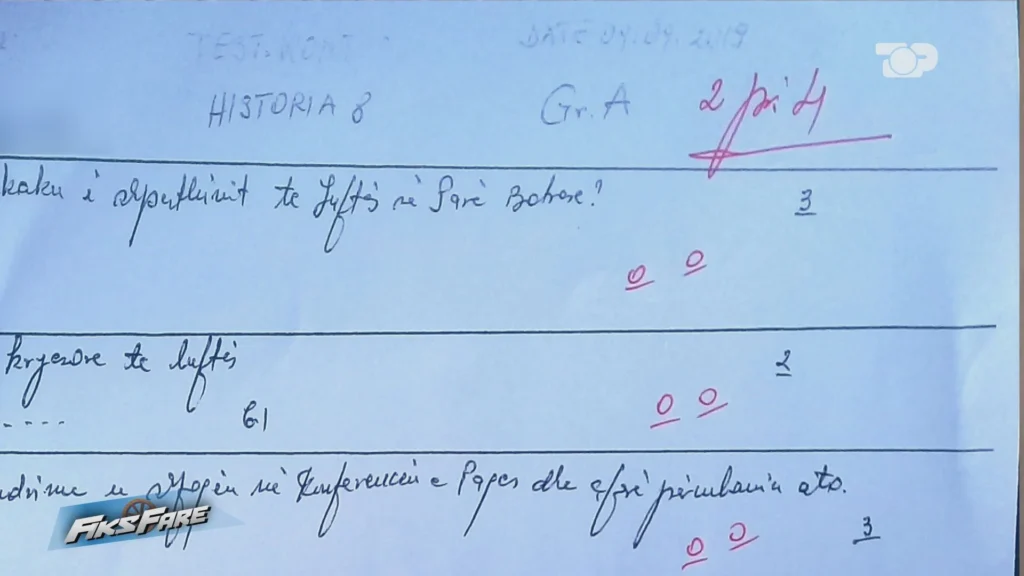 TEST. KONT DATE 04.04.2019
TOP
HISTORIA 8 Gr. A 2 për 4
kaku i shpërthimit te Luftës së Parë Botrore? 3
0 0
kryesore te luftës 2
..... b)
0 0
u shfaqën në Konferencën e Paqes dhe çfarë përmbanin ato.
0 0 3
FIKSFARE